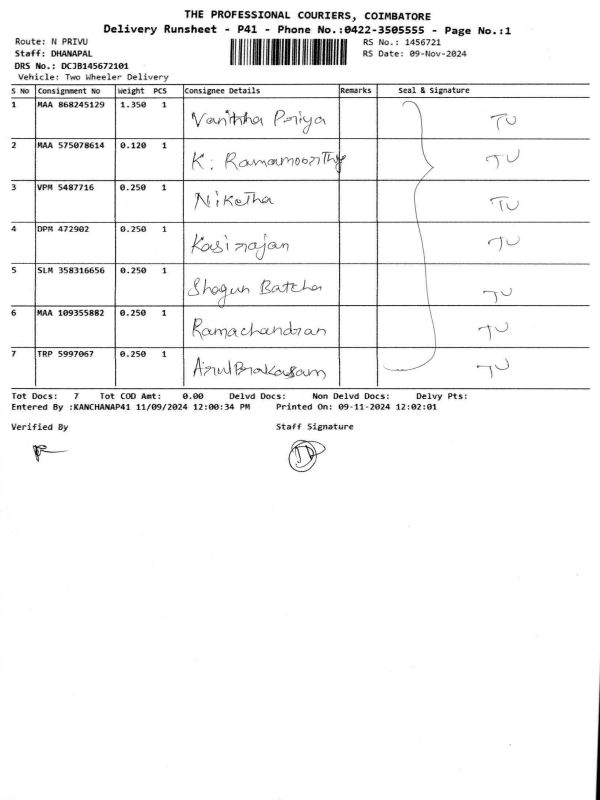 THE PROFESSIONAL COURIERS, COIMBATORE
Delivery Runsheet - P41 - Phone No.:0422-3505555 - Page No.:1
Route: N PRIVU RS No.: 1456721
Staff: DHANAPAL RS Date: 09-Nov-2024
DRS No.: DCJB145672101
Vehicle: Two Wheeler Delivery
S No Consignment No Weight PCS Consignee Details Remarks Seal & Signature
1 MAA 868245129 1.350 1 Vanithha Priya TU
2 MAA 575078614 0.120 1 K. Ramamoorthy TU
3 VPM 5487716 0.250 1 Niketha TU
4 DPM 472902 0.250 1 Kasirajan TU
5 SLM 358316656 0.250 1 Shagun Batcha TU
6 MAA 109355882 0.250 1 Ramachandran TU
7 TRP 5997067 0.250 1 ArulPrakasam TU
Tot Docs: 7 Tot COD Amt: 0.00 Delvd Docs: Non Delvd Docs: Delvy Pts:
Entered By :KANCHANAP41 11/09/2024 12:00:34 PM Printed On: 09-11-2024 12:02:01
Verified By Staff Signature